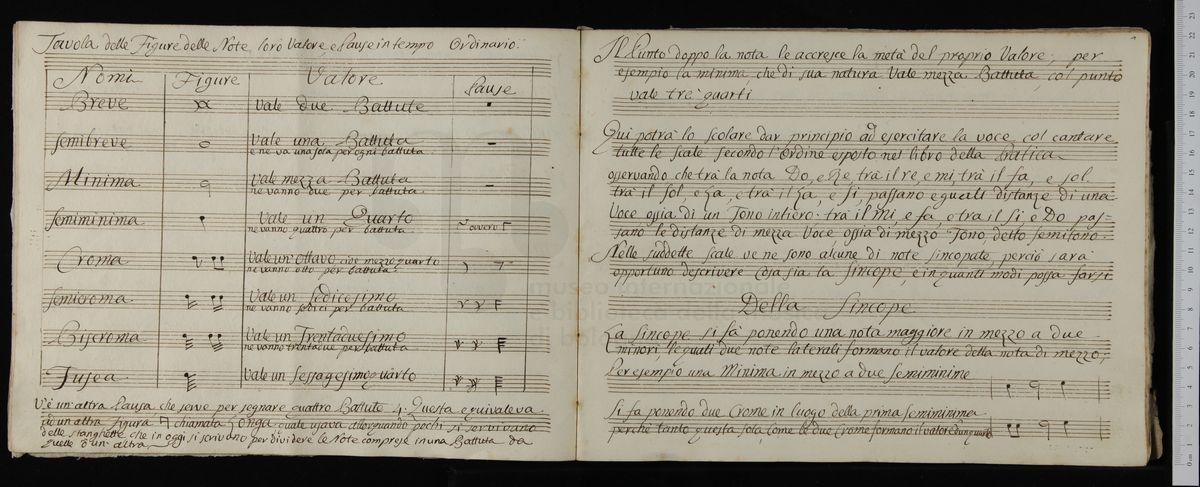 Tavola delle Figure delle Note loro Valore, e Pause in tempo Ordinario.
Nomi Figure Valore Pause
Breve Vale due Battute
Semibreve Vale una Battuta
e ne va una sola per ogni battuta.
Minima Vale mezza Battuta
ne vanno due per battuta.
Semiminima Vale un Quarto ovvero
ne vanno quattro per battuta.
Croma Vale un' ottavo cioè mezzo quarto
ne vanno otto per battuta.
Semicroma Vale un Sedicesimo
ne vanno sedici per battuta.
Biscroma Vale un Trentaduesimo
ne vanno trentadue per battuta.
Fusea Vale un Sessagesimoquarto
V'è un'altra Pausa che serve per segnare quattro Battute 4. Questa equivaleva
ad un'altra figura chiamata Longa quale usava allorquando pochi si servivano
delle stanghette che in oggi si scrivano per dividere le Note comprese in una Battuta da
quelle d'un' altra
Il Punto doppo la nota le accresce la metà del proprio Valore; per
esempio la minima che di sua natura Vale mezza Battuta, col punto
vale tre quarti
Quì potrà lo scolare dar principio ad esercitare la voce col cantare
tutte le scale secondo l'ordine esposto nel libro della Pratica
osservando che trà la nota Do, e Re, trà il re, e mi, trà il fa, e sol
trà il sol, e La, e trà il La, e si, passano eguali distanze di una
Voce ossia di un Tono intiero. trà il Mi, e fà e trà il sì e Do pas=
sano le distanze di mezza Voce ossia di mezzo Tono, detto semitono.
Nelle suddette scale ve ne sono alcune di note sincopate perciò sarà
opportuno descrivere cosa sia la sincope, e in quanti modi possa farsi
Della Sincope
La sincope si fà ponendo una nota maggiore in mezzo a due
minori le quali due note laterali formano il valore della nota di mezzo;
Per esempio una Minima in mezzo a due semiminime
Si fa ponendo due Crome in luogo della prima semiminima
perche tanto questa sola come le due Crome formano il valore d'un quarto
museo internazionale
e biblioteca della
di bolo